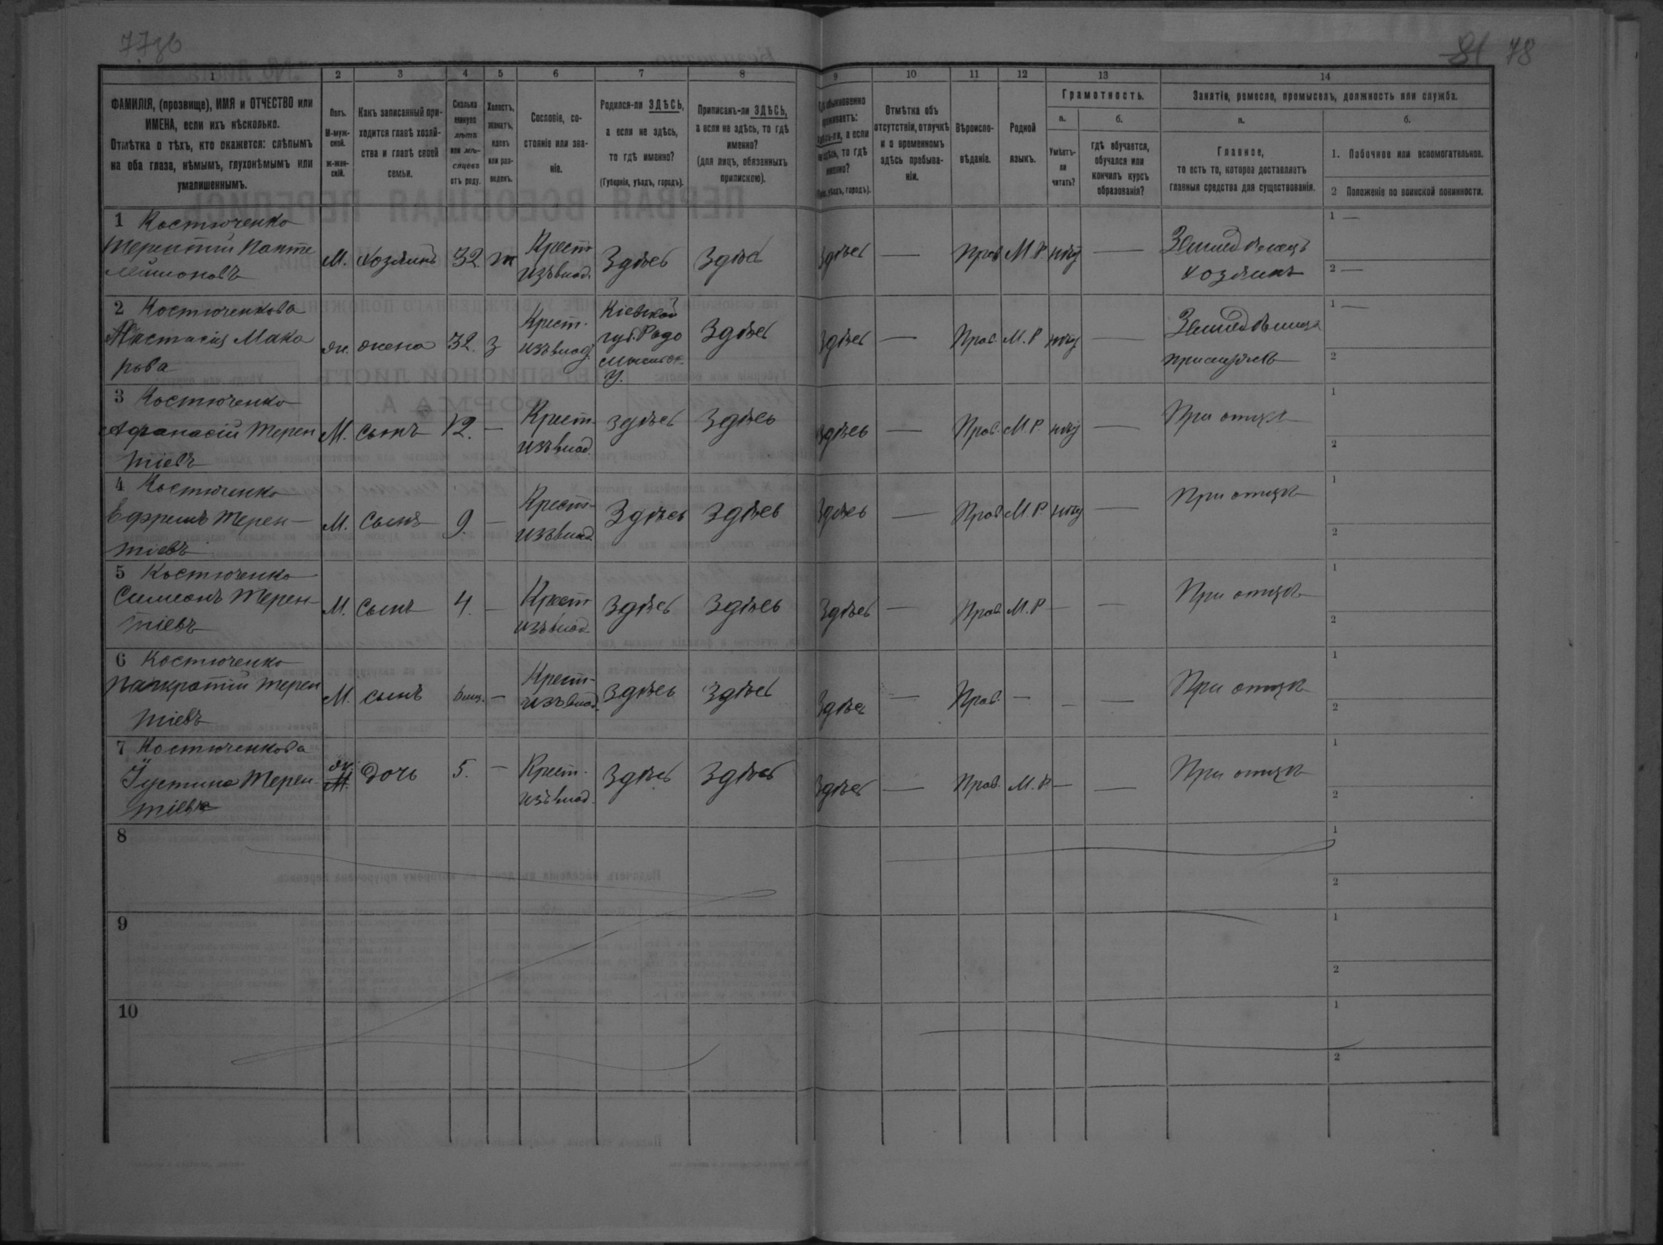 77об
81 78
1 2 3 4 5 6 7 8 9 10 11 12 13 14
ФАМИЛІЯ, (прозвище), ИМЯ и ОТЧЕСТВО или
ИМЕНА, если ихъ нѣсколько.
Отмѣтка о тѣхъ, кто окажется: слѣпымъ
на оба глаза, нѣмымъ, глухонѣмымъ или
умалишеннымъ.
Полъ.
М-муж-
ской.
ж-жен-
скій.
Какъ записанный при-
ходится главѣ хозяй-
ства и главѣ своей
семьи.
Сколько
минуло
лѣтъ
или мѣ-
сяцевъ
отъ роду.
Холостъ,
женатъ,
вдовъ
или раз-
веденъ.
Сословіе, со-
стояніе или зва-
ніе.
Родился-ли ЗДѢСЬ,
а если не здѣсь,
то гдѣ именно?
(Губернія, уѣздъ, городъ).
Приписанъ-ли ЗДѢСЬ,
а если не здѣсь, то гдѣ
именно?
(для лицъ, обязанныхъ
припискою).
обыкновенно
проживаетъ:
здѣсь-ли, а если
не здѣсь, то гдѣ
именно?
уѣздъ, городъ).
Отмѣтка объ
отсутствіи, отлучкѣ
и о временномъ
здѣсь пребыва-
ніи.
Вѣроиспо-
вѣданіе.
Родной
языкъ.
Грамотность.
а.
Умѣетъ-
ли
читать?
б.
гдѣ обучается,
обучался или
кончилъ курсъ
образованія?
Занятіе, ремесло, промыселъ, должность или служба.
а.
Главное,
то есть то, которое доставляетъ
главныя средства для существованія.
б.
1. Побочное или вспомогательное.
2 Положеніе по воинской повинности.
1 Костюченко
Терентій Панте
леймоновъ
М. хозяинъ 32 ж
Крест.
изъ влад.
Здѣсь Здѣсь Здѣсь — Прав. М.Р нѣтъ —
Земледѣлецъ
хозяинъ
1 —
2 —
2 Костюченкова
Анастасія Мака
рова
ж. жена 32. з
Крест.
изъ влад.
Кіевской
губ. Радо
мысльск.
у.
Здѣсь Здѣсь — Прав. М.Р нѣтъ —
Земледѣлица
при мужѣ
1 —
2
3 Костюченко
Афанасій Терен
тіевъ
М. сынъ 12. —
Крест.
изъ влад.
здѣсь Здѣсь Здѣсь — Прав. М.Р нѣтъ —
При отцѣ
1
2
4 Костюченко
Ефремъ Терен-
тіевъ
М. Сынъ 9. —
Крест.
изъ влад.
Здѣсь Здѣсь Здѣсь — Прав. М.Р нѣтъ
При отцѣ
1
2
5 Костюченко
Симеонъ Терен-
тіевъ
М. Сынъ 4. —
Крест.
изъ влад.
Здѣсь Здѣсь Здѣсь — Прав. М.Р — —
При отцѣ
1
2
6 Костюченко
Панкратій Терен
тіевъ
М. сынъ 6 мц. —
Крест.
изъ влад.
Здѣсь Здѣсь Здѣсь — Прав. — — —
При отцѣ
1
2
7 Костюченкова
Іустина Терен-
тіева
ж.
М.
Дочь 5. —
Крест.
изъ влад.
Здѣсь Здѣсь Здѣсь — Прав. М.Р — —
При отцѣ
1
2
8
1
2
9
1
2
10
1
2